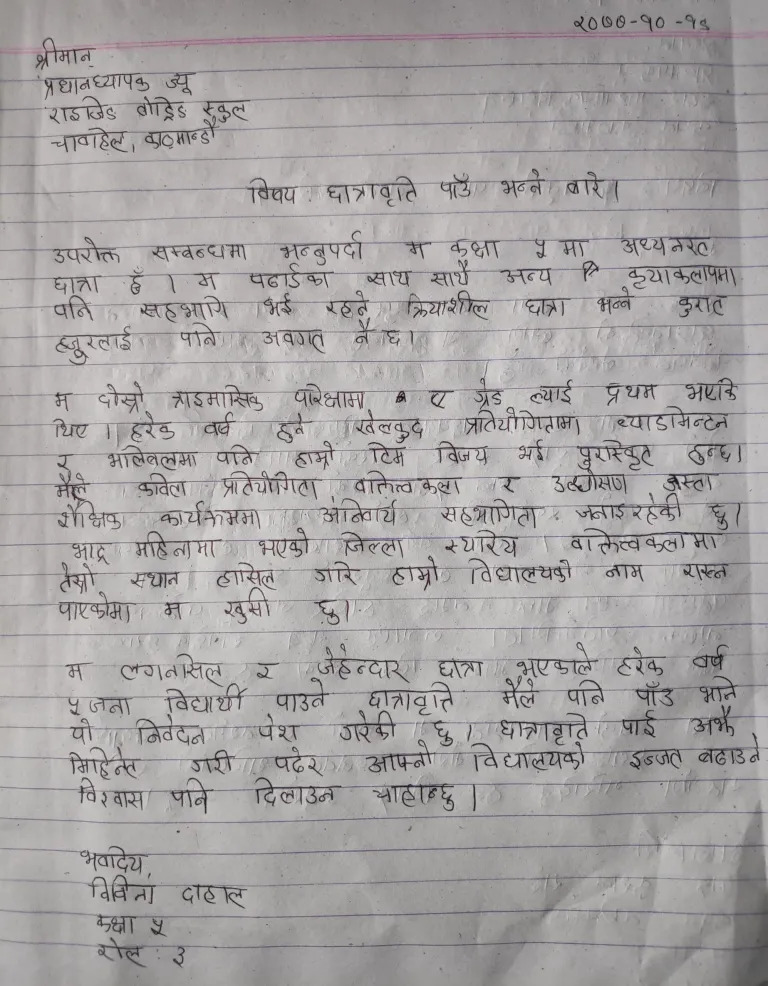 २०७७-१०-१९
श्रीमान्
प्रधानध्यापक ज्यू
राइजिङ वोर्डिङ स्कुल
चावहिल, काठ्मान्डौ
विषय : छात्रावृति पाँउ भन्ने बारे ।
उपरोक्त सम्बन्धमा भन्नुपर्दा म कक्षा ५ मा अध्यनरत
छात्रा हुँ । म पढाईका साथ साथै अन्य कृयाकलापमा
पनि सहभागि भई रहने क्रियाशील छात्रा भन्ने कुरात
हजुरलाई पनि अवगत नै छ ।
म दोस्रो त्राइमासिक परिक्षामा ए ग्रेड ल्याई प्रथम भएकि
थिए । हरेक वर्ष हुने खेलकुद प्रतियोगितामा ब्याडमिन्टन
र भलिबलमा पनि हाम्रो टिम विजय भई पुरस्कृत हुन्छ ।
मैले कविता प्रतियोगिता वक्तित्वकला र उद्घोसण जस्ता
शैक्षिक कार्यक्रममा अनिवार्य सहभागिता जनाइरहेकी छु ।
भाद्र महिनामा भएको जिल्ला स्यरिय वक्तित्वकलामा
तेस्रो स्थान हासिल गरि हाम्रो विद्यालयको नाम राख्न
पाएकोमा म खुसी छु ।
म लगनसिल र जेहेन्दार छात्रा भएकाले हरेक वर्ष
५ जना विद्यार्थी पाउने छात्रावृति मैले पनि पाँउ भनि
यो निवेदन पेश गरेकी छु । छात्रावृति पाई अझै
मिहिनेत गरी पढेर आफ्नो विद्यालयको इज्जत बढाउने
विश्वास पनि दिलाउन चाहान्छु ।
भवदिय,
विविना दाहाल
कक्षा ५
रोल : ३